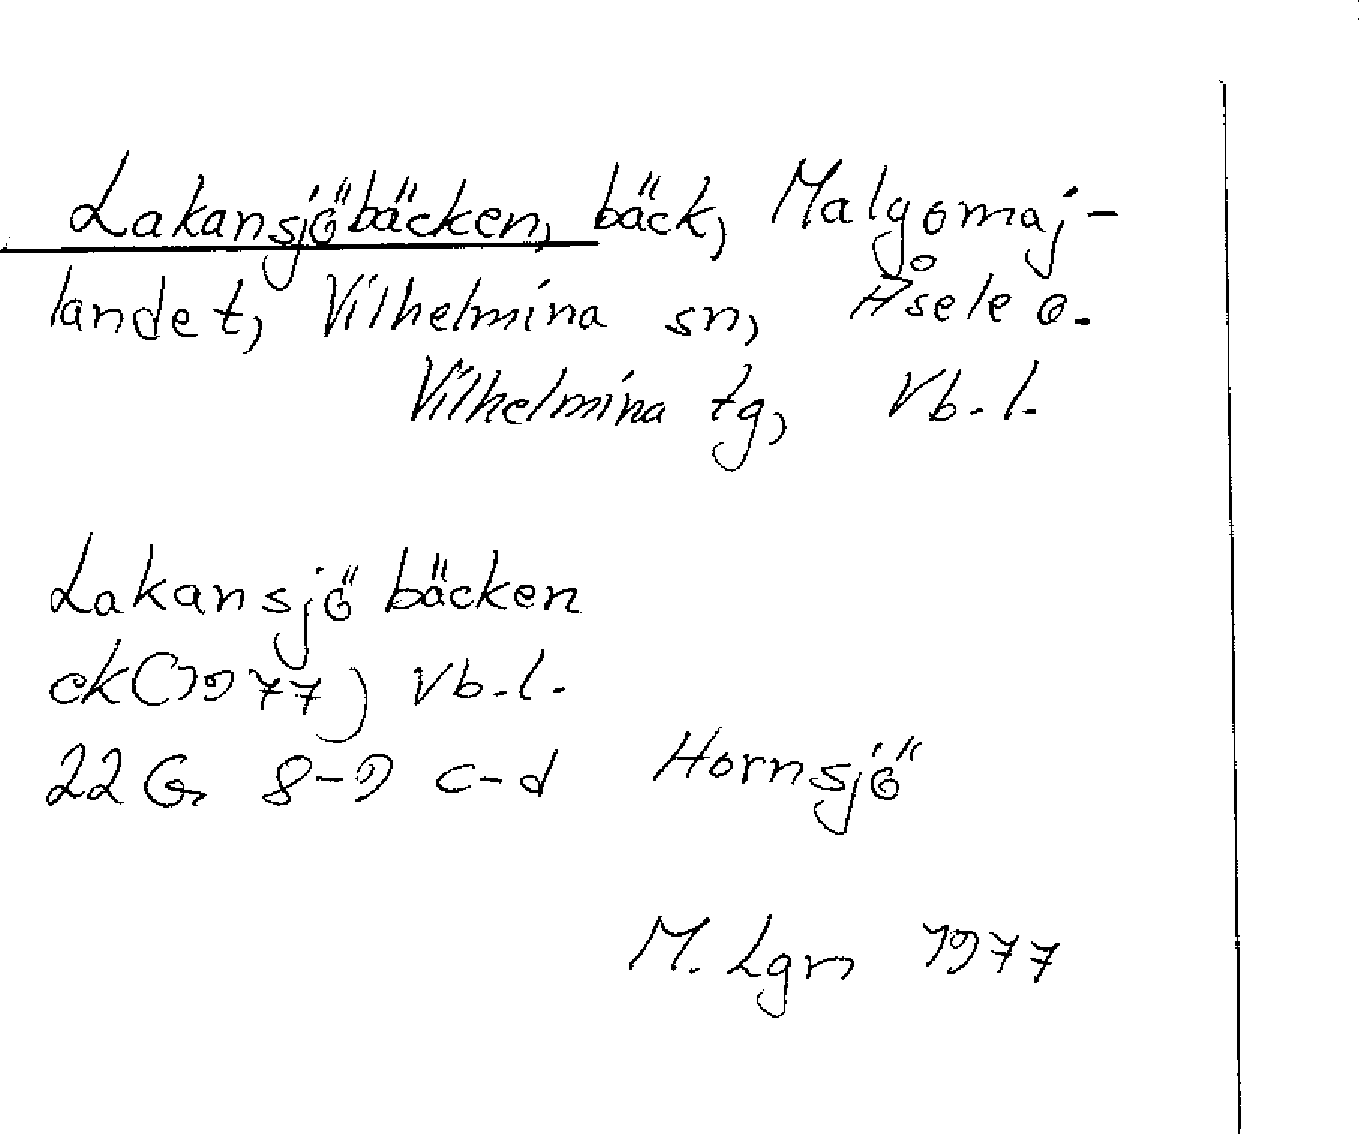 Lakansjöbäcken, bäck, Malgomaj-
landet, Vilhelmina sn, Åsele o.
Vilhelmina tg, Vb.l.
Lakansjöbäcken
ek(1977) Vb.l.
22G 8-9 c-d Hornsjö
M. Lgn 1977